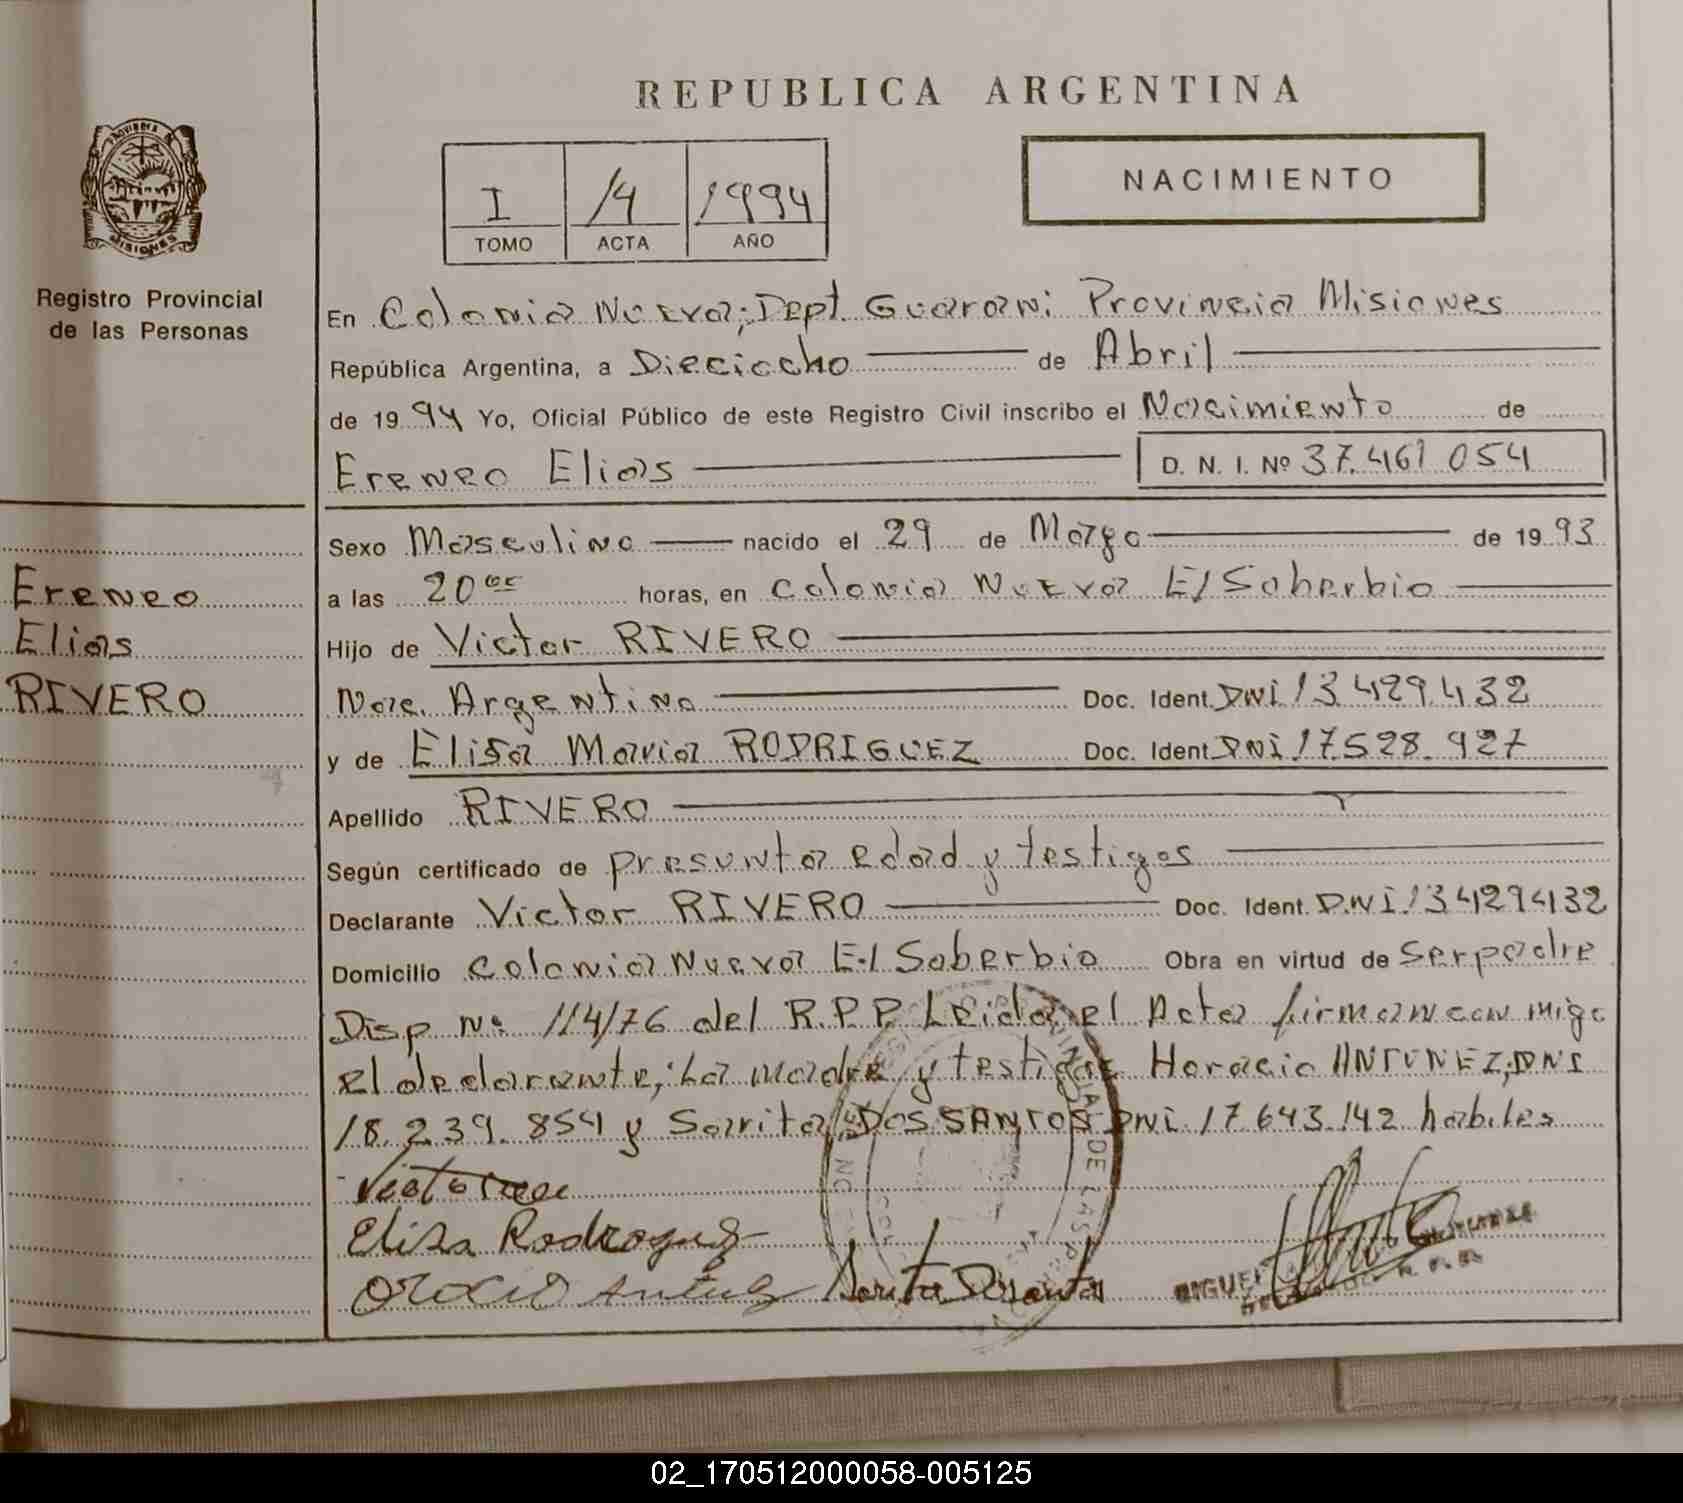 REPUBLICA ARGENTINA
PROVINCIA DE
MISIONES
Registro Provincial
de las Personas
I 14 1994
TOMO ACTA AÑO
NACIMIENTO
En Colonia Nueva; Dept. Guarani Provincia Misiones
República Argentina, a Dieciocho de Abril
de 1994 Yo, Oficial Público de este Registro Civil inscribo el Nacimiento de
Ereneo Elias D. N. I. Nº 37.461 054
Sexo Masculino nacido el 29 de Marzo de 1993
a las 20 horas, en Colonia Nueva El Soberbio
Hijo de Victor RIVERO
Nac. Argentino Doc. Ident. DNI 13.429.432
y de Elisa Maria RODRIGUEZ Doc. Ident. DNI 17.528.927
Apellido RIVERO
Según certificado de presunta edad y testigos
Declarante Victor RIVERO Doc. Ident. D.N.I. 13429432
Domicilio Colonia Nueva El Soberbio Obra en virtud de Ser padre
Disp. Nº 114/76 del R.P.P. Leida el Acta firman con migo
el declarante, La madre y testigos Horacio ANTUNEZ; DNI
18.239.854 y Sarita DOS SANTOS DNI 17643.142 habiles
Ereneo
Elias
RIVERO
Elisa
Sarita
MIGUEL
02_170512000058-005125